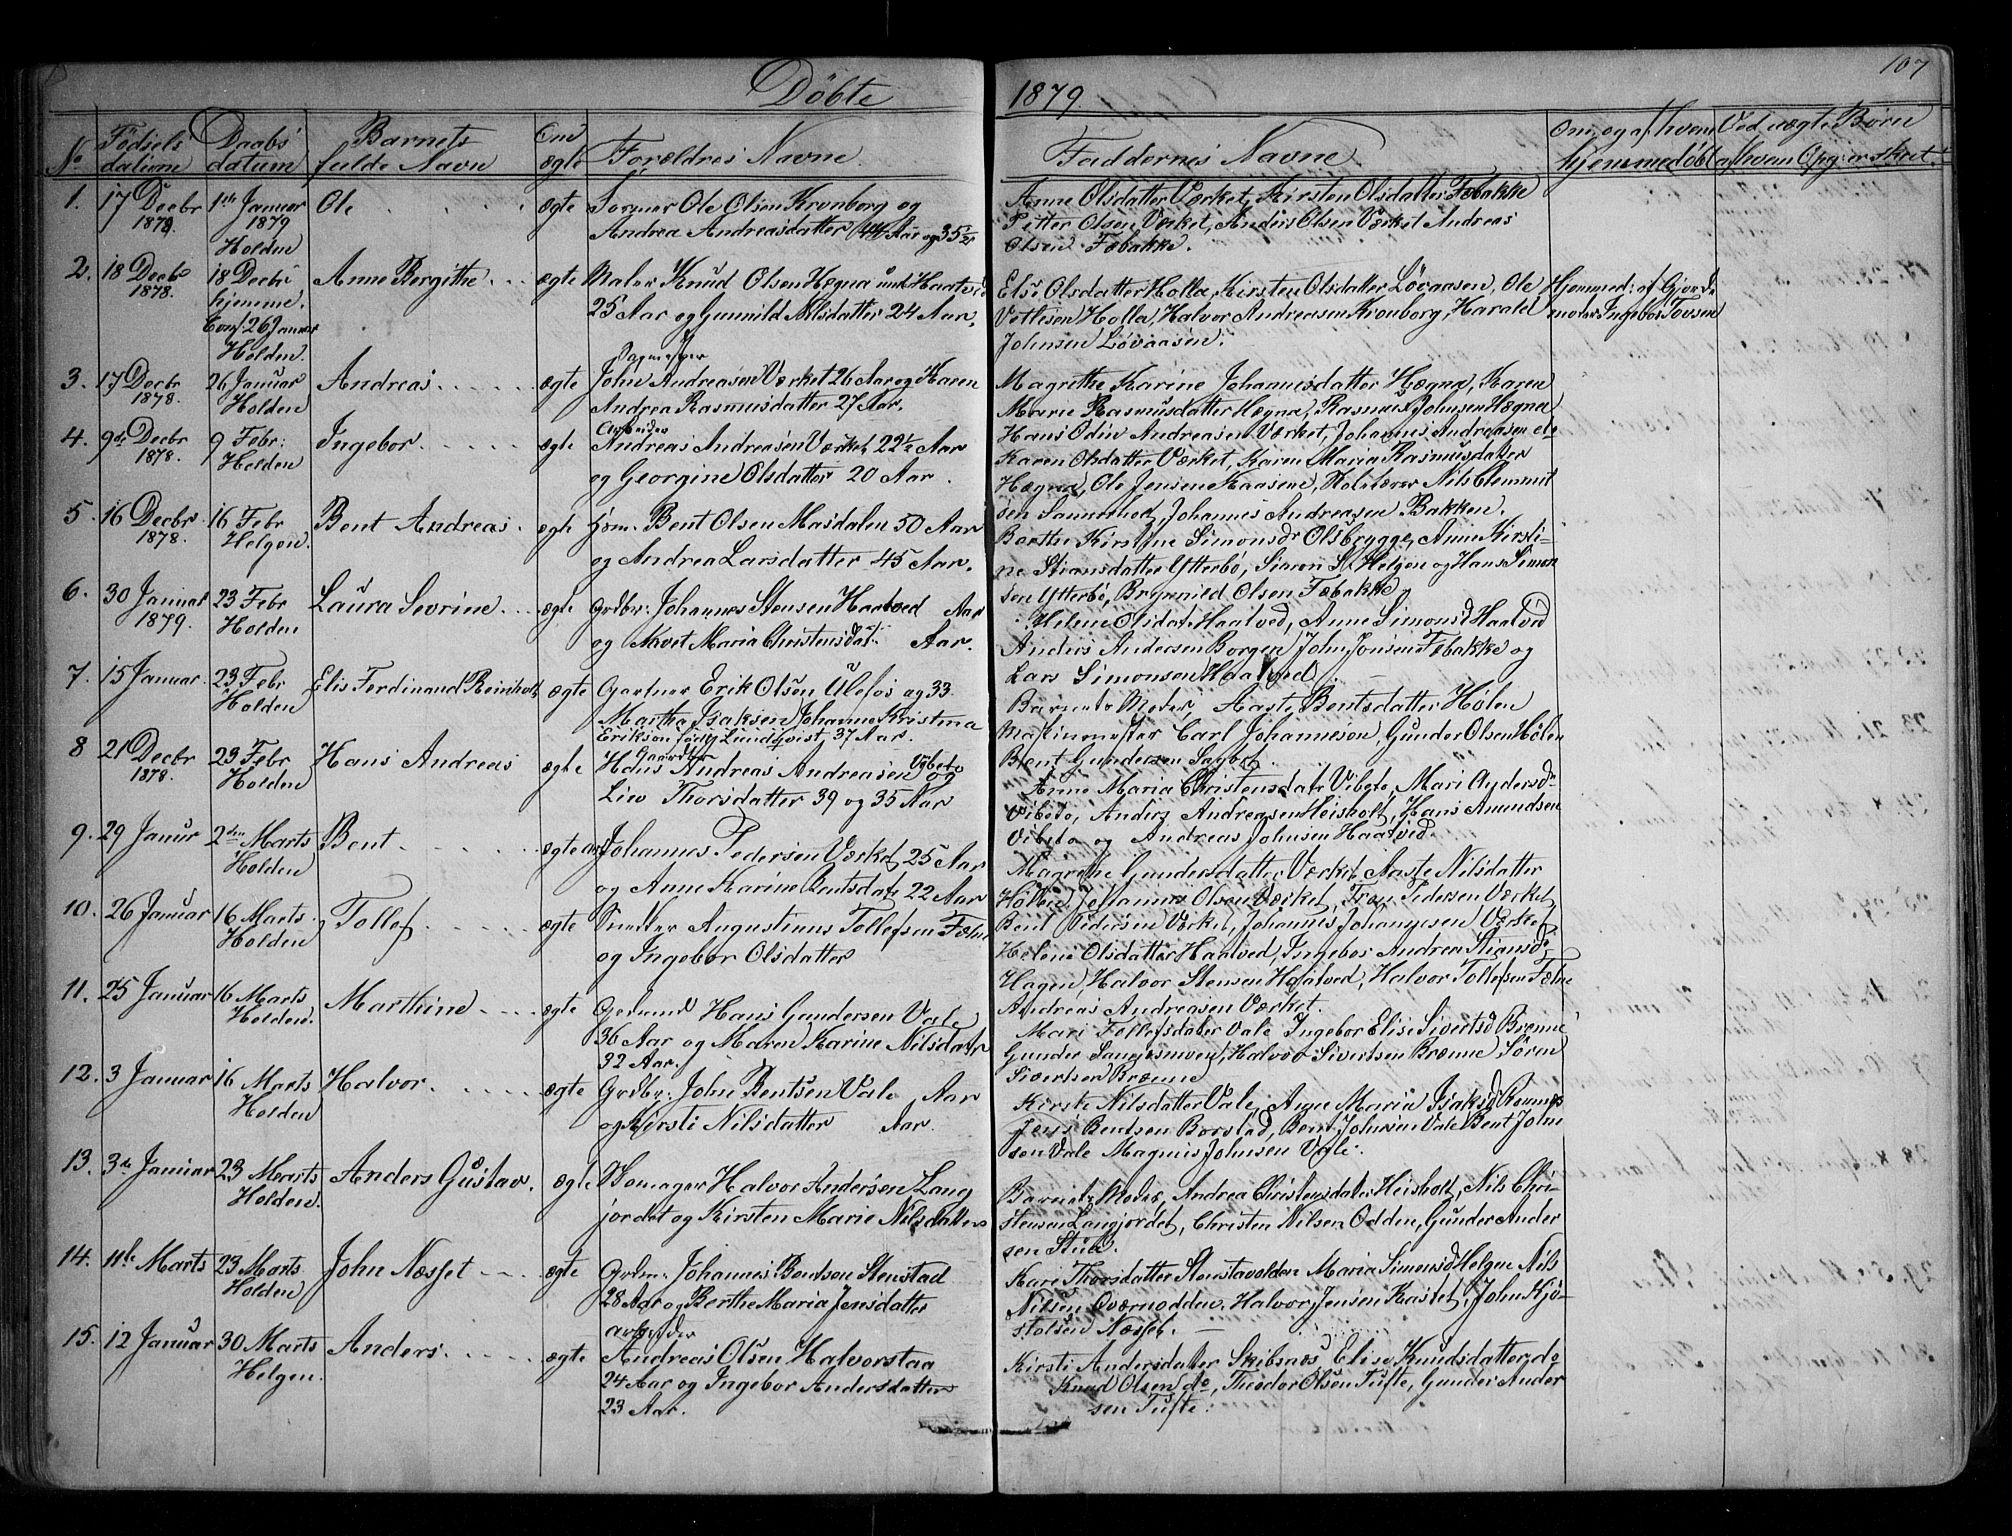 107
Döbte
1879.
No
Födsels datum
Daabs datum
Barnets fulde Navn
Om ægte
Forældres Navne.
Faddernes Navne
Om og af hvem hjemmedöbt
Ved uægte Børn af hvem Opg: er skeet.
1. 17 Decbr 1879. 1ste Januar 1879 Holden Ole ægte
Ole Olsen Kronborg og
Andrea Andreasdatter 44 Aar og 35 1/2
Anne Olsdatter Værket, Kirsten Olsdatter Fæbakke
Petter Olsen Værket, Anders Olsen Værket Andreas
Olsen Fæbakke.
2. 18 Decbr 1878. 18 Decbr hjemme. Conf. 26 Januar Holden Anne Bergithe ægte
Maler Knud Olsen Hægna
25 Aar og Gunnild Nilsdatter 24 Aar.
Else Olsdatter Holla, Kirsten Olsdatter Løvaasen, Ole
Vetlesen Holla, Halvor Andreasen Kronborg, Harald
Johnsen Løvaasen.
Hjemmed: af Gjord-
moder Ingebor Tovsen
3. 17 Decbr 1878. 26 Januar Holden Andreas ægte
John Andreasen Værket 26 Aar og Karen
Andrea Rasmusdatter 27 Aar.
Magrethe Karine Johannesdatter Hægna, Karen
Marie Rasmusdatter Hægna, Rasmus Johnsen Hægna
Hans Odin Andreasen Værket, Johannes Andreasen do
4. 9de Decbr 1878. 9 Febr: Holden Ingebor ægte
Arbeider
Andreas Andreasen Værket 22 1/2 Aar
og Georgine Olsdatter 20 Aar.
Karen Olsdatter Værket, Karen Maria Rasmusdatter
Hægna, Ole Jensen Kaasene, Nils Clemmit
sen Johannes Andreasen Bakken.
5. 16 Decbr 1878. 16 Febr Helgen. Bent Andreas ægte
Bent Olsen Masdalen 50 Aar
og Andrea Larsdatter 45 Aar.
Berthe Kirstine Simonsdr Olsbrygge, Anne Kirsti-
ne Stiansdatter Ytterbö, Simon S. Helgen og Hans Simon
sen Ytterbö, Brynnild Olsen Fæbakke
6. 30 Januar 1879. 23 Febr Holden Laura Sevrine ægte
Grdbr: Johannes Stensen Haatved Aar
og Maria Christensdat: Aar.
Helene Olsdat. Haatved, Anne Simonsd Haatved
Anders Andersen Borgen, John Jonsen Fæbakke og
Lars Simonsen Haatved.
7. 15 Januar. 23 Febr Holden Elis Ferdinand Reinholt ægte
Gartner Erik Olsen Ulefos og 33.
Martha Isaksen Johanne Kristina
Erikson født Lundqvist, 37 Aar.
Barnets Moder, Aaste Bentsdatter Hølen
Maskinmester Carl Johannesen, Gunder Olsen Hölen
Bent Gundersen
8 21 Decbr 1878. 23 Febr Holden Hans Andreas ægte
Hans Andreas Andreasen Vibeto og
Liv Thorsdatter 39 og 35 Aar
Anne Maria Christensdatr Vibeto, Mari Andersdr
Vibeto, Anders Andreasen Heisholt, Hans Amundsen
Vibeto og Andreas Johnsen Haatved.
9. 29 Janur 2den Marts Holden Bent ægte
Johannes Pedersen Værket 25 Aar
og Anne Karine Bentsdatr 22 Aar
Magrethe Gundersdatter Værket Aaste Nilsdatter
Johannes Olsen Værket, Pedersen Værket
Bent Pedersen Værket, Johannes Johannesen Værket
10. 26 Januar 16 Marts Holden Tollef ægte
Snedker Augustinus Tollefsen Fæhn
og Ingebor Olsdatter
Helene Olsdatter Haatved, Ingebor Andrea Stiansdr
Hagen, Halvor Stensen Haatved, Halvor Tollefsen Fæhn
Andreas Andreasen Værket.
11. 25 Januar 16 Marts Holden. Marthine ægte
Hans Gundersen Vale
36 Aar og Maren Karine Nilsdatr
32 Aar.
Mari Tollefsdater Vale Ingebor Elise Sivertsd Brenne
Gunder Halvor Sivertsen Brænne Sören
Sivertsen Brænne
12. 3 Januar 16 Marts Holden Halvor ægte
Grdbr: John Bentsen Vale Aar
og Kirsti Nilsdatter Aar.
Kirste Nilsdatter Vale, Anne Maria Isaksd
Jens Bentsen Borstad, Bent Johnsen Vale Bent John
sen Vale Magnus Johnsen Vale.
13. 3de Januar 23 Marts Holden. Anders Gustav. ægte
Halvor Andersen Lang
jordet og Kirsten Marie Nilsdatter
Barnets Moder, Andrea Christensdater Heisholt, Nils Chri-
stensen Langjordet, Christen Nilsen Odden, Gunder Ander
sen Stub.
14. 11te Marts 23 Marts Holden John Næsset ægte
Johannes Bentsen Stenstad
28 Aar og Berthe Maria Jensdatter
Kari Thorsdatter Maria Simonsd Helgen Nils
Nilsen Halvor Jensen Kastet, John Kjö-
stolsen Næsset.
15. 12 Januar 30 Marts Helgen. Anders ægte
arbeider
Andreas Olsen Halvorstaa
24 Aar og Ingebor Andersdatter
23 Aar.
Kirsti Andersdatter Skibsnæs, Elise Knudsdatter do
Knud Olsen do, Theodor Olsen Tufte, Gunder Ander
sen Tufte.